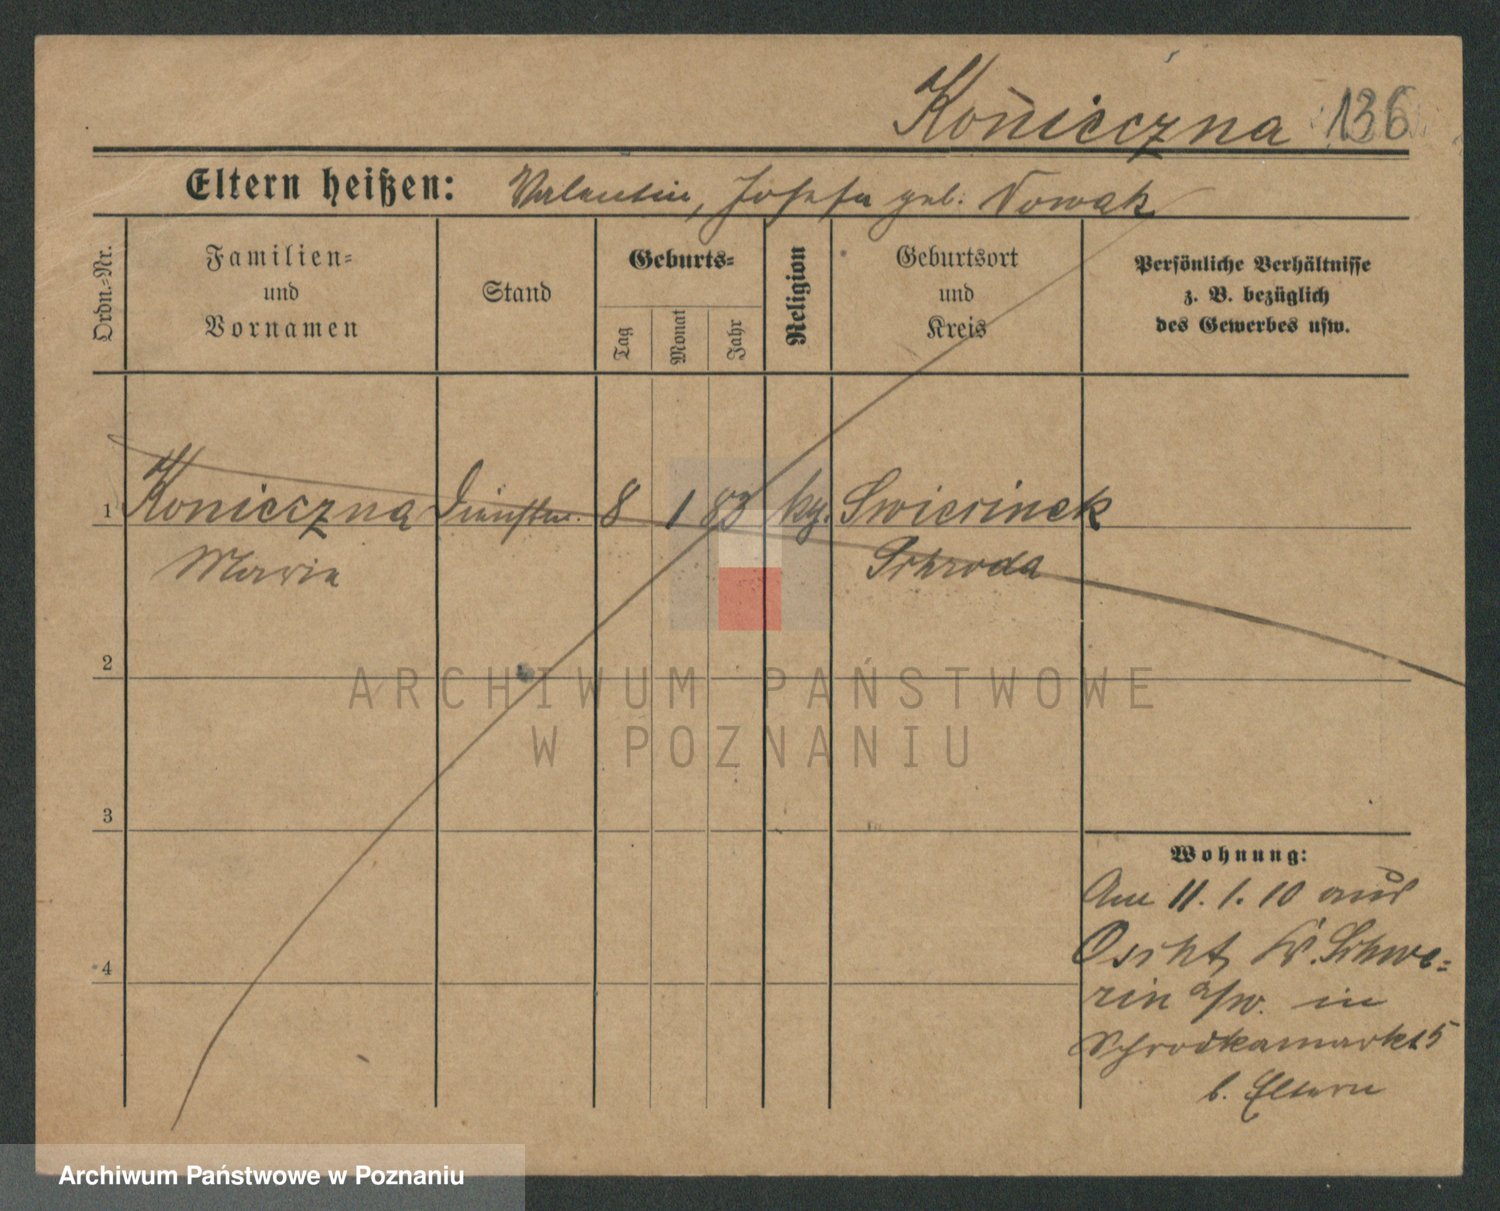 Konieczna 136
Eltern heißen: Valentin, Josefa geb. Nowak
Ordn.-Nr.
Familien-
und
Vornamen
Stand
Geburts-
Tag
Monat
Jahr
Religion
Geburtsort
und
Kreis
Persönliche Verhältnisse
z. B. bezüglich
des Gewerbes usw.
1 Konieczna 8 1 83 Swierinek
Maria Schroda
2
3
4
ARCHIWUM PAŃSTWOWE
W POZNANIU
Wohnung:
Am 11. 1. 10 aus
Oscht, Kr. Schwe-
rin a/w. in
Schrodkamarkt 5
b. Eltern
Archiwum Państwowe w Poznaniu